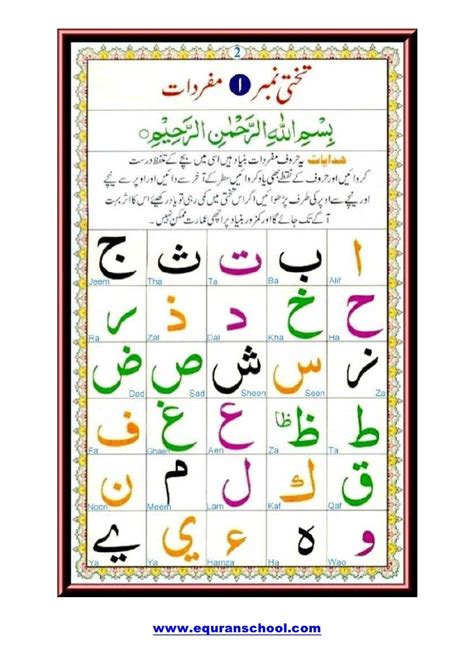 2
تختی نمبر ۱ مفردات
بِسْمِ اللهِ الرَّحْمٰنِ الرَّحِيْمِ
ہدایات یہ حروف مفردات بنیاد ہیں اسی میں بچے کے تلفظ درست
کروائیں اور حروف کے نقطے بھی یاد کروائیں سطر کے آخر سے دائیں اور اوپر سے نیچے
اور نیچے سے اوپر کی طرف پڑھوائیں اگر اس تختی میں کمی رہی تو یاد رکھیئے اس کا اثر بہت
آگے تک جائے گا اور کمزور بنیاد پر اچھی عمارت ممکن نہیں۔
ا ب ت ث ج
Alif Ba Ta Tha Jeem
ح خ د ذ ر
Ha Kha Dal Zal Ra
ز س ش ص ض
Za Seen Sheen Sad Dad
ط ظ ظا ع غ ف
Ta Za Aen Ghaen Fa
ق ك ل م ن
Qaf Kaf Lam Meem Noon
و ه ء ي ے
Wao Ha Hamza Ya Ya
www.equranschool.com